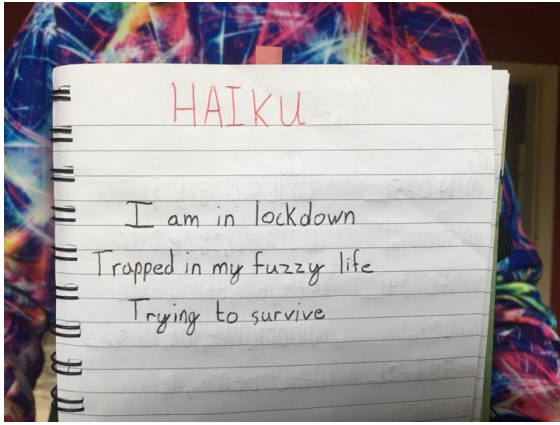 HAIKU
I am in lockdown
Trapped in my fuzzy life
Trying to survive